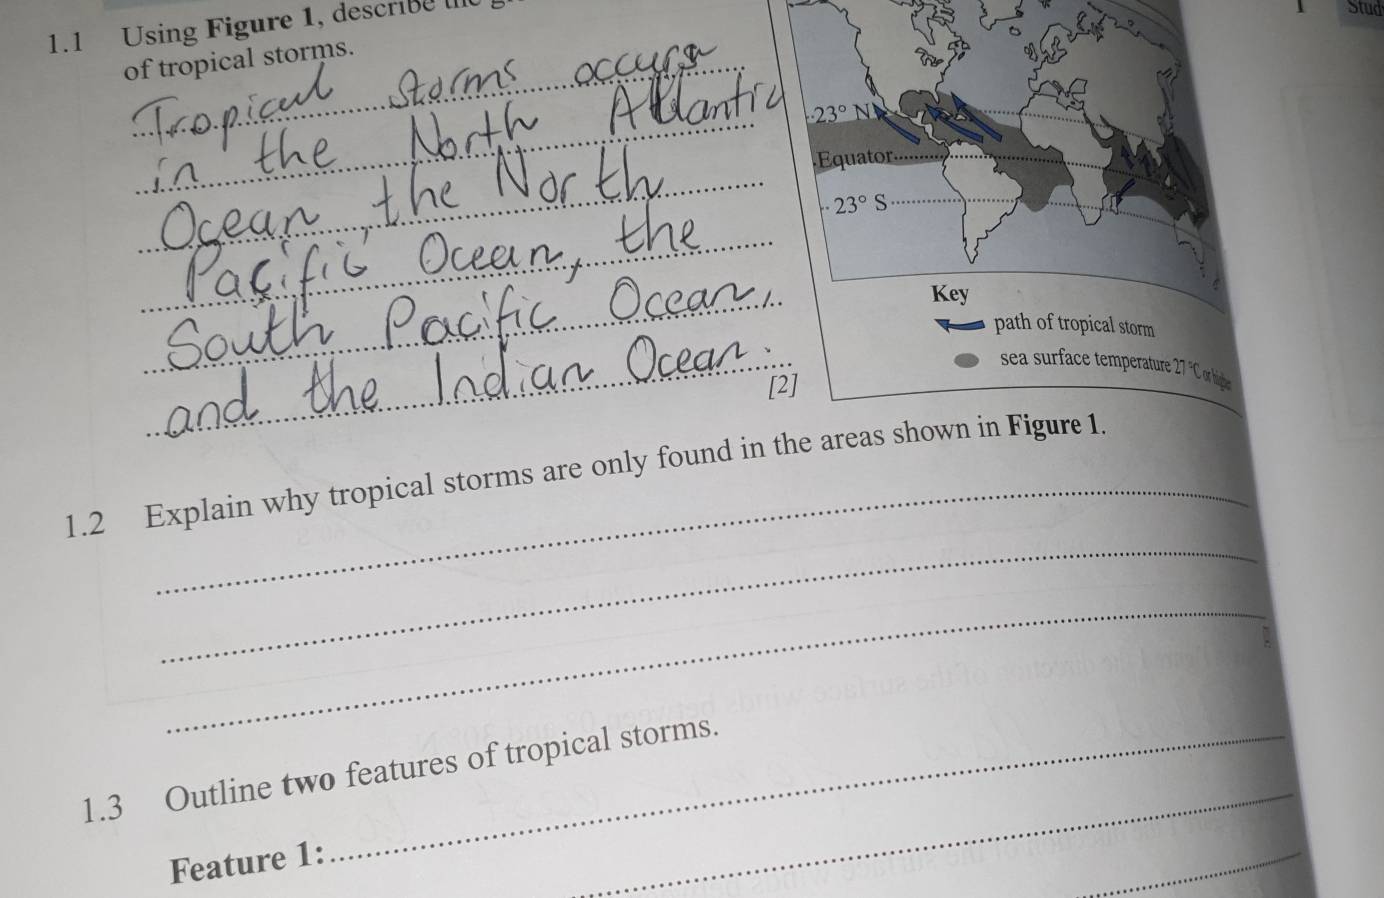 1.1 Using Figure 1, describe
of tropical storms.
Tropical storms occurs
in the North Atlantic
Ocean, the North
Pacific Ocean, the
South Pacific Ocean,
and the Indian Ocean.
[2]
23° N
Equator
23° S
Key
path of tropical storm
sea surface temperature 27 °C or higher
1.2 Explain why tropical storms are only found in the areas shown in Figure 1.
1.3 Outline two features of tropical storms.
Feature 1: